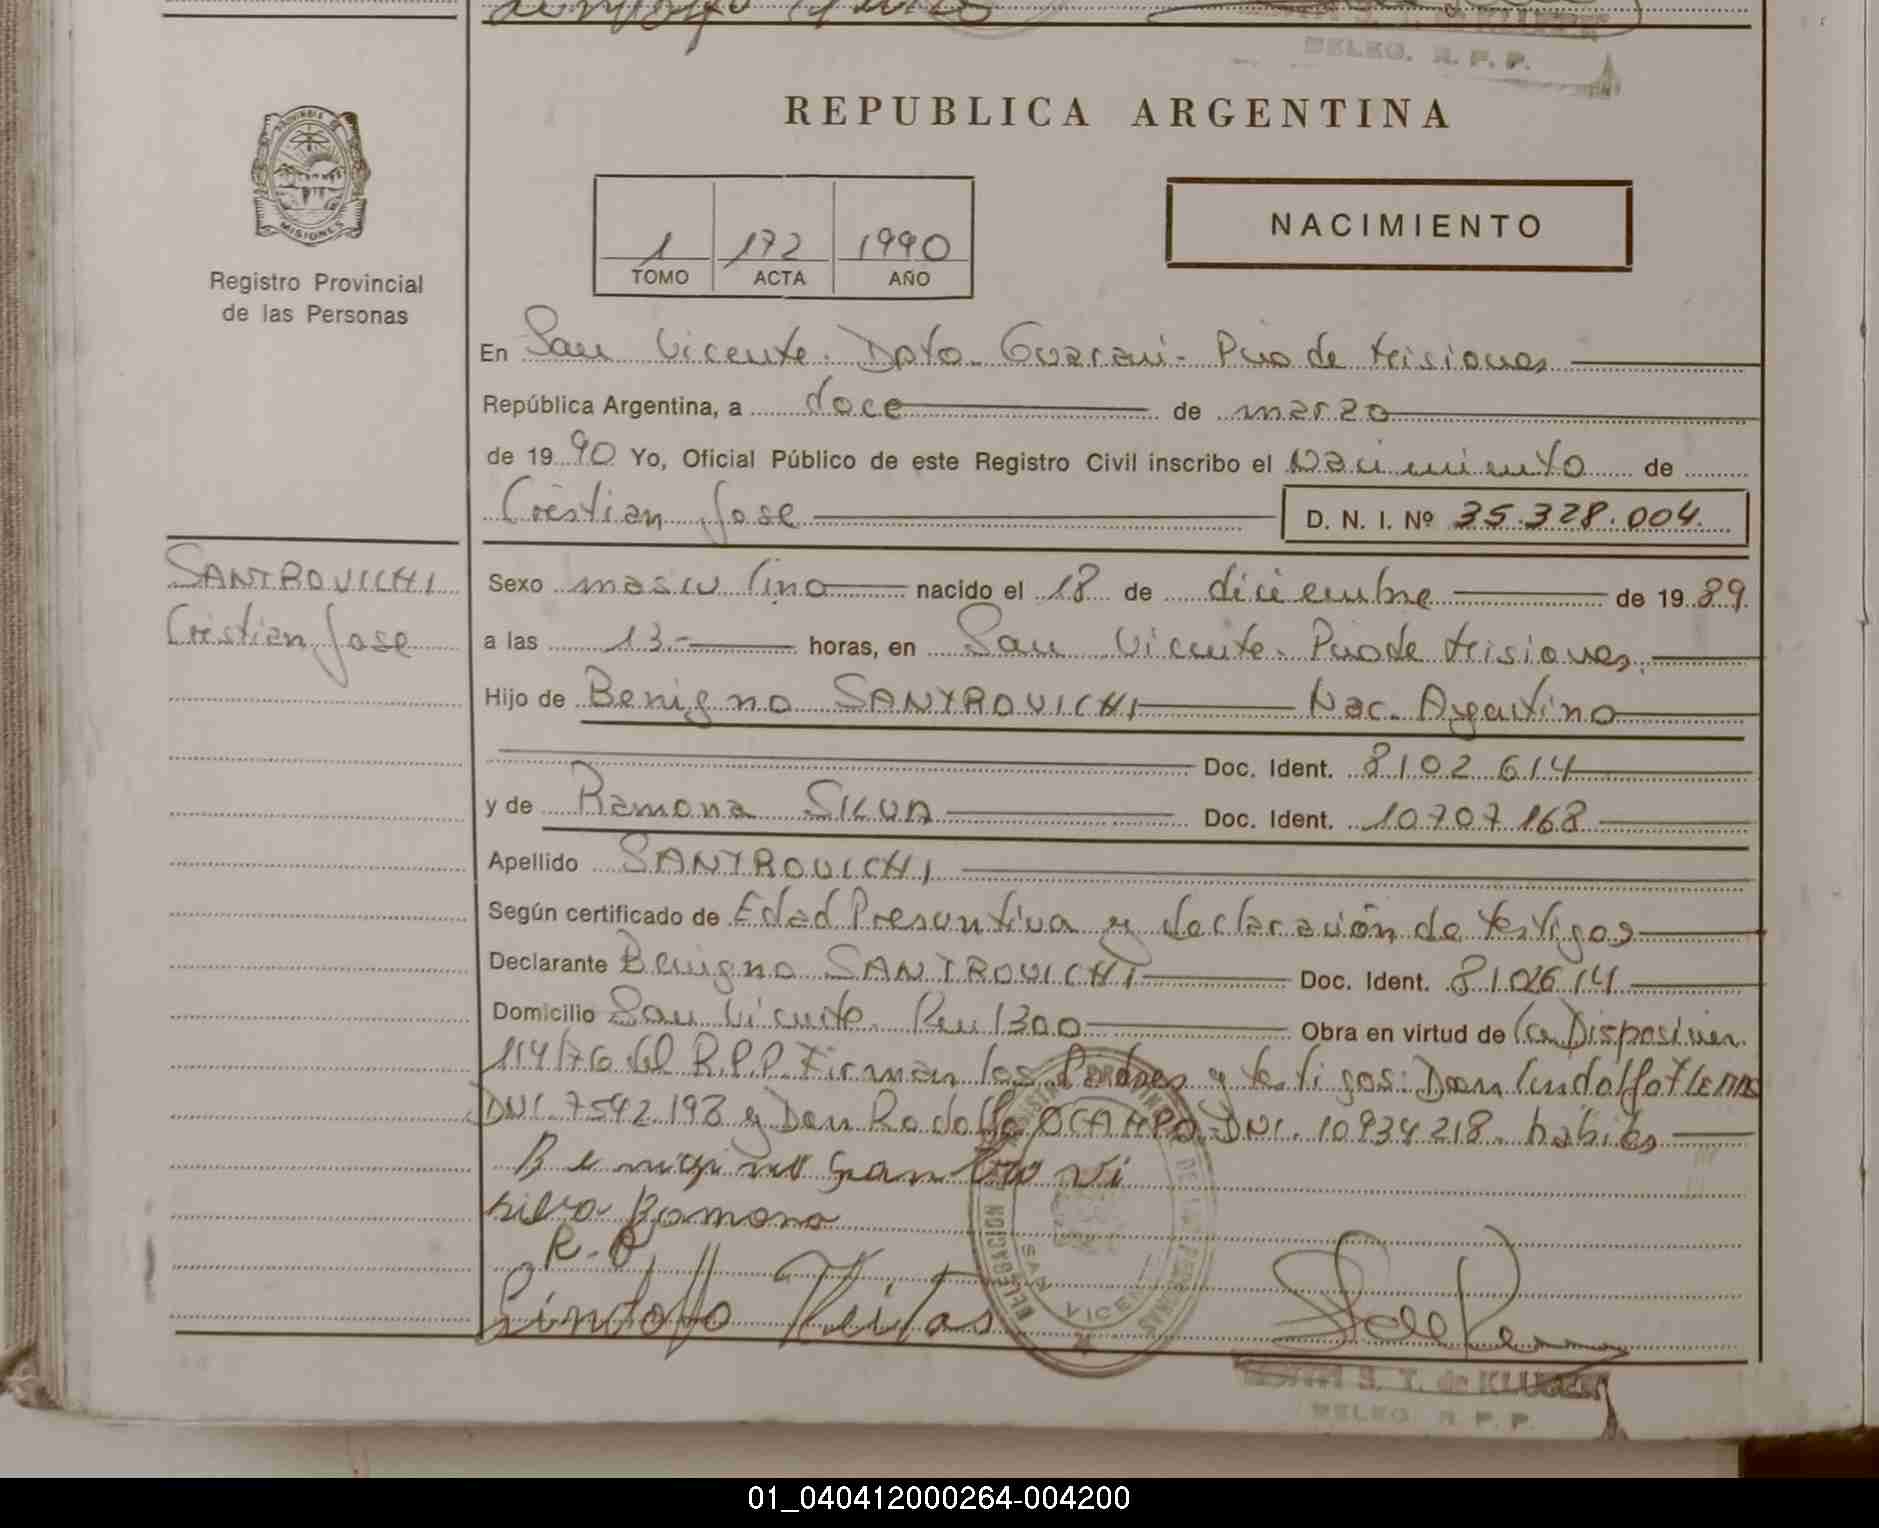 DELEG. R. P. P.
REPUBLICA ARGENTINA
PROVINCIA DE
MISIONES
Registro Provincial
de las Personas
1 172 1990
TOMO ACTA AÑO
NACIMIENTO
En San Vicente. Dpto. Guarani - Pcia de Misiones
República Argentina, a doce de marzo
de 1990 Yo, Oficial Público de este Registro Civil inscribo el Nacimiento de
Cristian Jose D. N. I. Nº 35.328.004
SANTROVICHI
Cristian Jose
Sexo masculino nacido el 18 de diciembre de 1989
a las 13.- horas, en San Vicente. Pcia de Misiones.
Hijo de Benigno SANTROVICHI Nac. Argentino
Doc. Ident. 8102614
y de Ramona SILVA Doc. Ident. 10707168
Apellido SANTROVICHI
Según certificado de Edad Presuntiva y declaración de testigos
Declarante Benigno SANTROVICHI Doc. Ident. 8102614
Domicilio San Vicente. Km 1300 Obra en virtud de la Disposición
114/76 del R.P.P. Firman los Padres y testigos: Don Lindolfo
DNI. 7542198 y Don Rodolfo OCAMPO. DNI. 10934218. habiles
Benigno Santrovi
Silva Ramona
R. O
Lindolfo
DELEGACION SAN VICENTE
S. T. de KLUGER
DELEG. R. P. P.
01_040412000264-004200